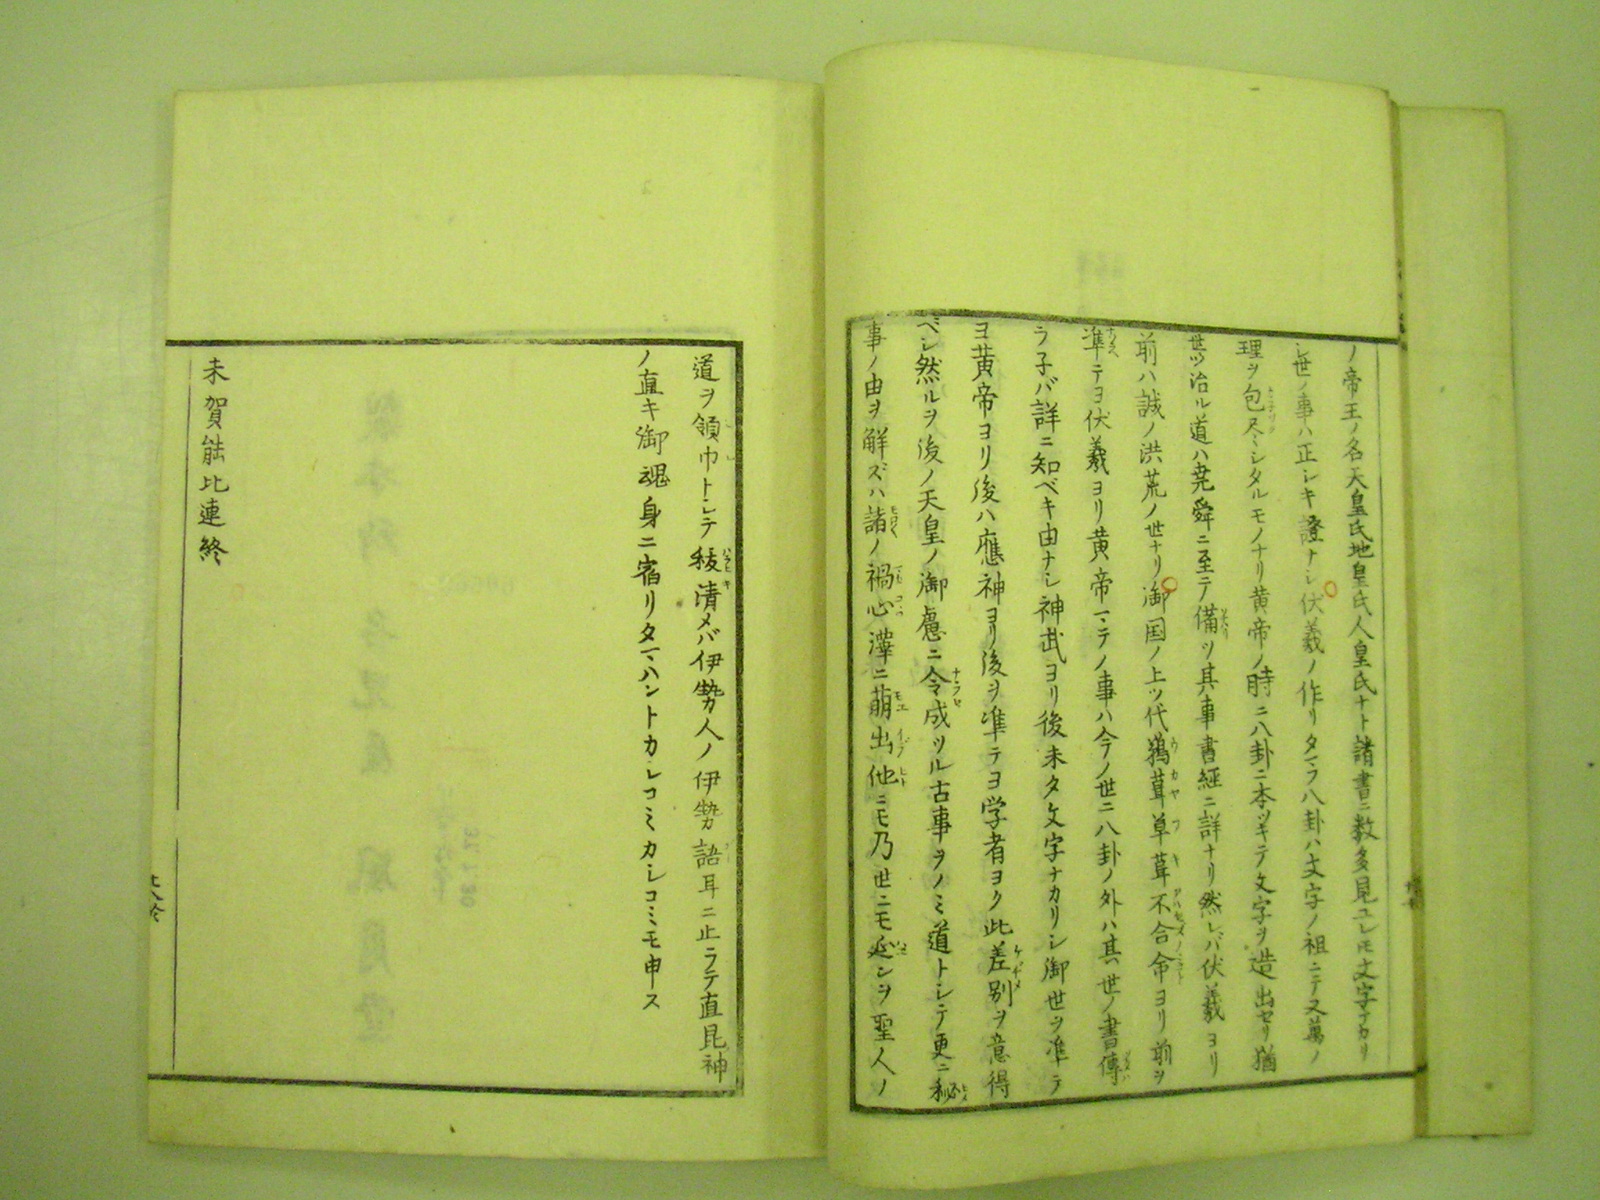 ノ帝王ノ名天皇氏地皇氏人皇氏ナト諸書ニ数多見ユレモ文字ナカリ
シ世ノ事ハ正シキ證ナシ伏羲ノ作リタマフ八卦ハ文字ノ祖ニテ又萬ノ
理ヲ包尽ミシタルモノナリ黄帝ノ時ニ八卦ニ本ツキテ文字ヲ造出セリ猶
世ツ治ル道ハ尭舜ニ至テ備ツ其事書經ニ詳ナリ然レバ伏羲ヨリ
前ハ誠ノ洪荒ノ世ナリ御国ノ上ツ代鵜葺草葺不合命ヨリ前ヲ
準テヨ伏羲ヨリ黄帝マテノ事ハ今ノ世ニ八卦ノ外ハ其世ノ書傳
ラ子バ詳ニ知ベキ由ナシ神武ヨリ後未タ文字ナカリシ御世ヲ准テ
ヨ黄帝ヨリ後ハ應神ヨリ後ヲ準テヨ学者ヨク此差別ヲ意得
ベシ然ルヲ後ノ天皇ノ御慮ニ令成ツル古事ヲノミ道トシテ更ニ秘
事ノ由ヲ解ズハ諸ノ禍心澤ニ萠出他ニモ乃世ニモ延ンヲ聖人ノ
道ヲ領巾トシテ秡清メバ伊勢人ノ伊勢語耳ニ止ラテ直昆神
ノ直キ御魂身ニ宿リタマハントカシコミカシコミモ申ス
未賀能比連終